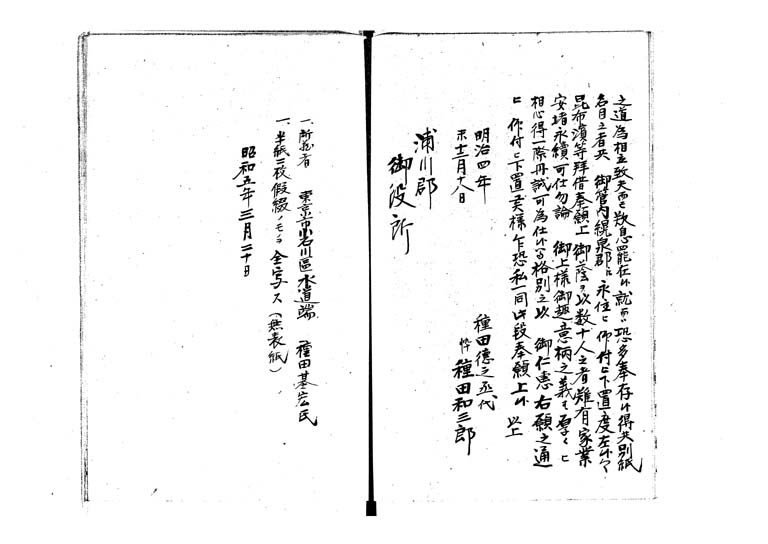 之道為相立致天而已歎息罷在候就而ハ恐多奉存候得共別紙
名目之者共 御管内幌泉郡ニ永住被 仰付被下置度左候ハヽ
昆布濱等拜借奉願上 御蔭ヲ以数十人之者難有家業
安堵永續可仕勿論 御上様御趣意柄之義も厚く
相心得一際丹誠可為仕候間格別之以 御仁憲右願之通
被 仰付被下置候様乍恐私一同此段奉願上候 以上
明治四年
未十二月十八日
種田徳之丞代
忰 種田和三郎
浦川郡
御役所
一、所蔵者 東京市小石川區水道端 種田基宏氏
一、半紙三枚假綴ノモノ全写ス(無表紙)
昭和五年三月二十日